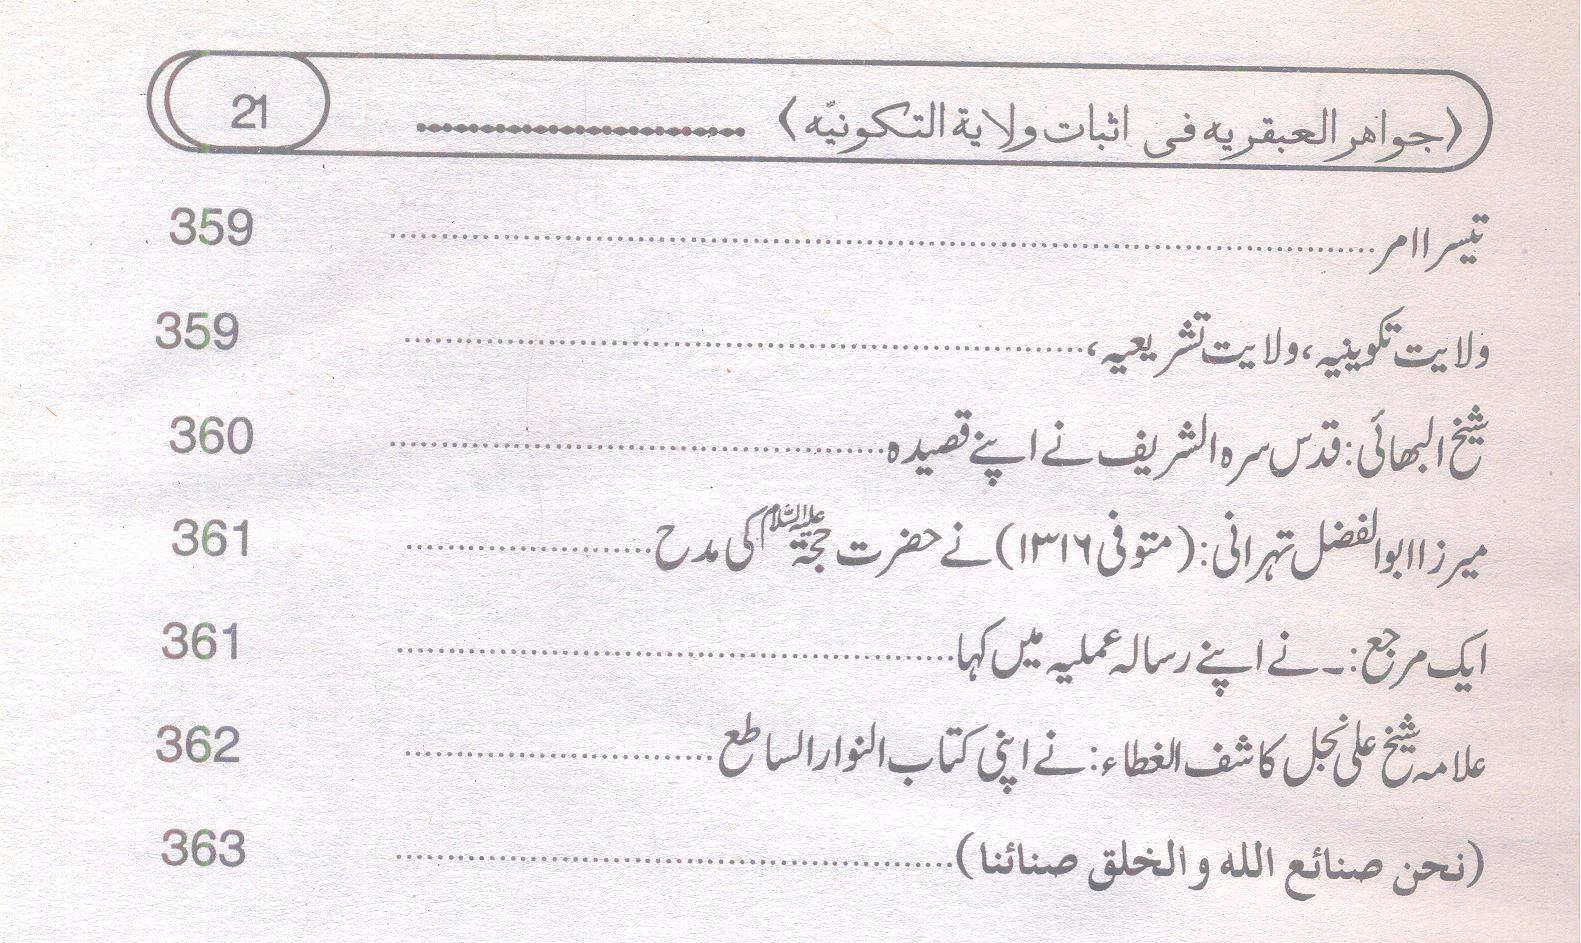 ﴿جواهر العبقریه فی اثبات ولایة التکونیّه﴾ ........................ 21
تیسرا امر ........................ 359
ولایت تکوینیہ، ولایت تشریعیہ، ........................ 359
شیخ البھائی: قدس سرہ الشریف نے اپنے قصیدہ ........................ 360
میرزا ابوالفضل تہرانی: (متوفی ۱۳۱۶) نے حضرت حجۃ علیہ السّلام کی مدح ........................ 361
ایک مرجع:۔ نے اپنے رسالہ عملیہ میں کہا ........................ 361
علامہ شیخ علی نجل کاشف الغطاء: نے اپنی کتاب النوار الساطع ........................ 362
(نحن صنائع الله و الخلق صنائنا) ........................ 363